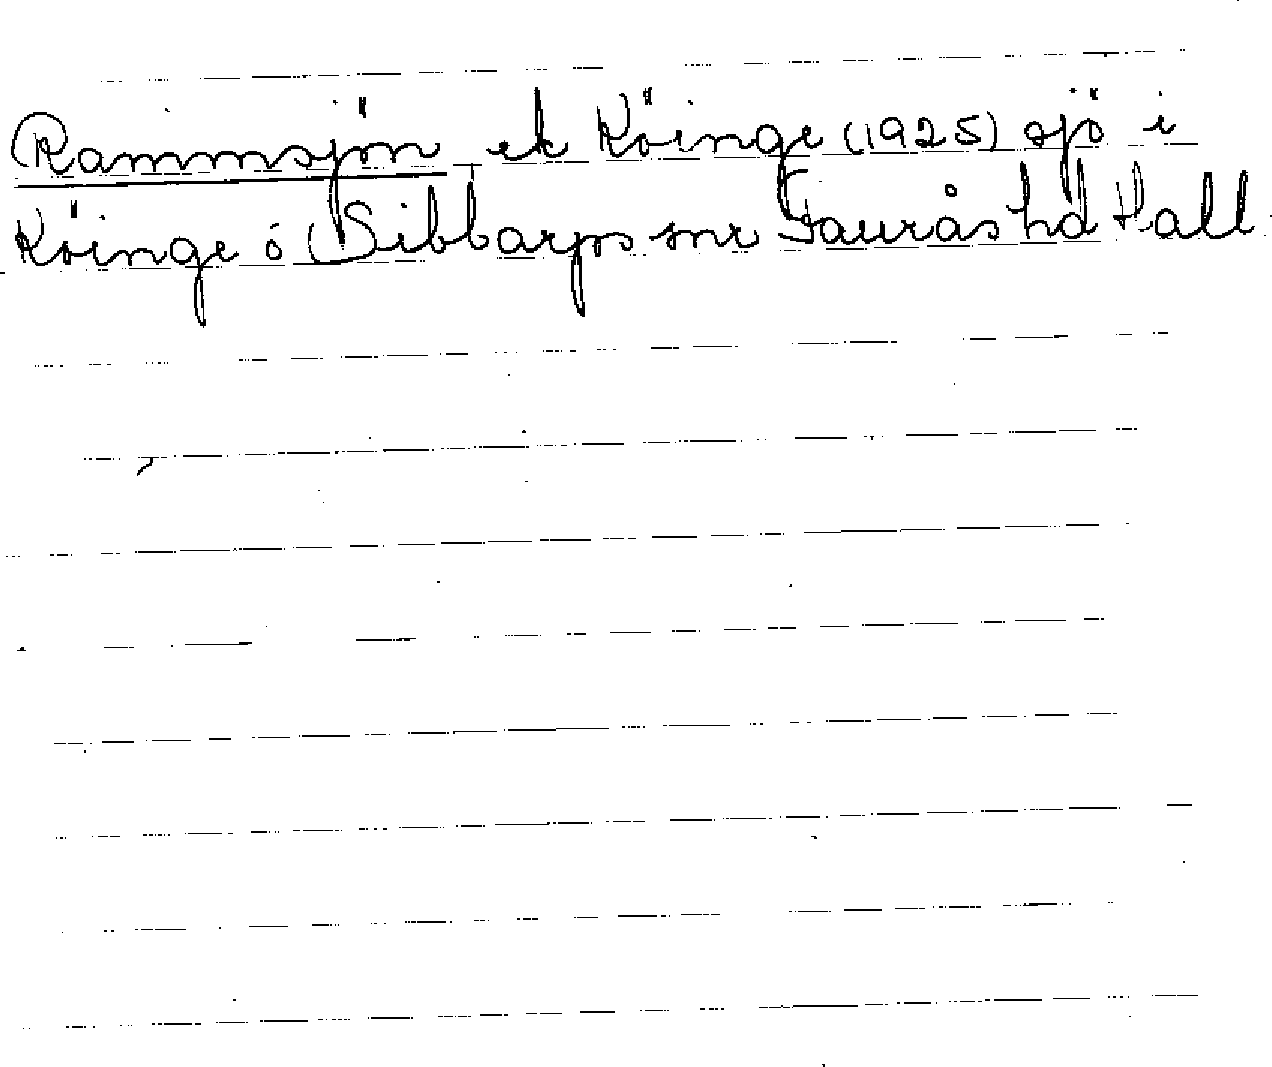 Rammsjön ek Köinge (1925) sjö i
Köinge o Sibbarps snr Faurås hd Hall